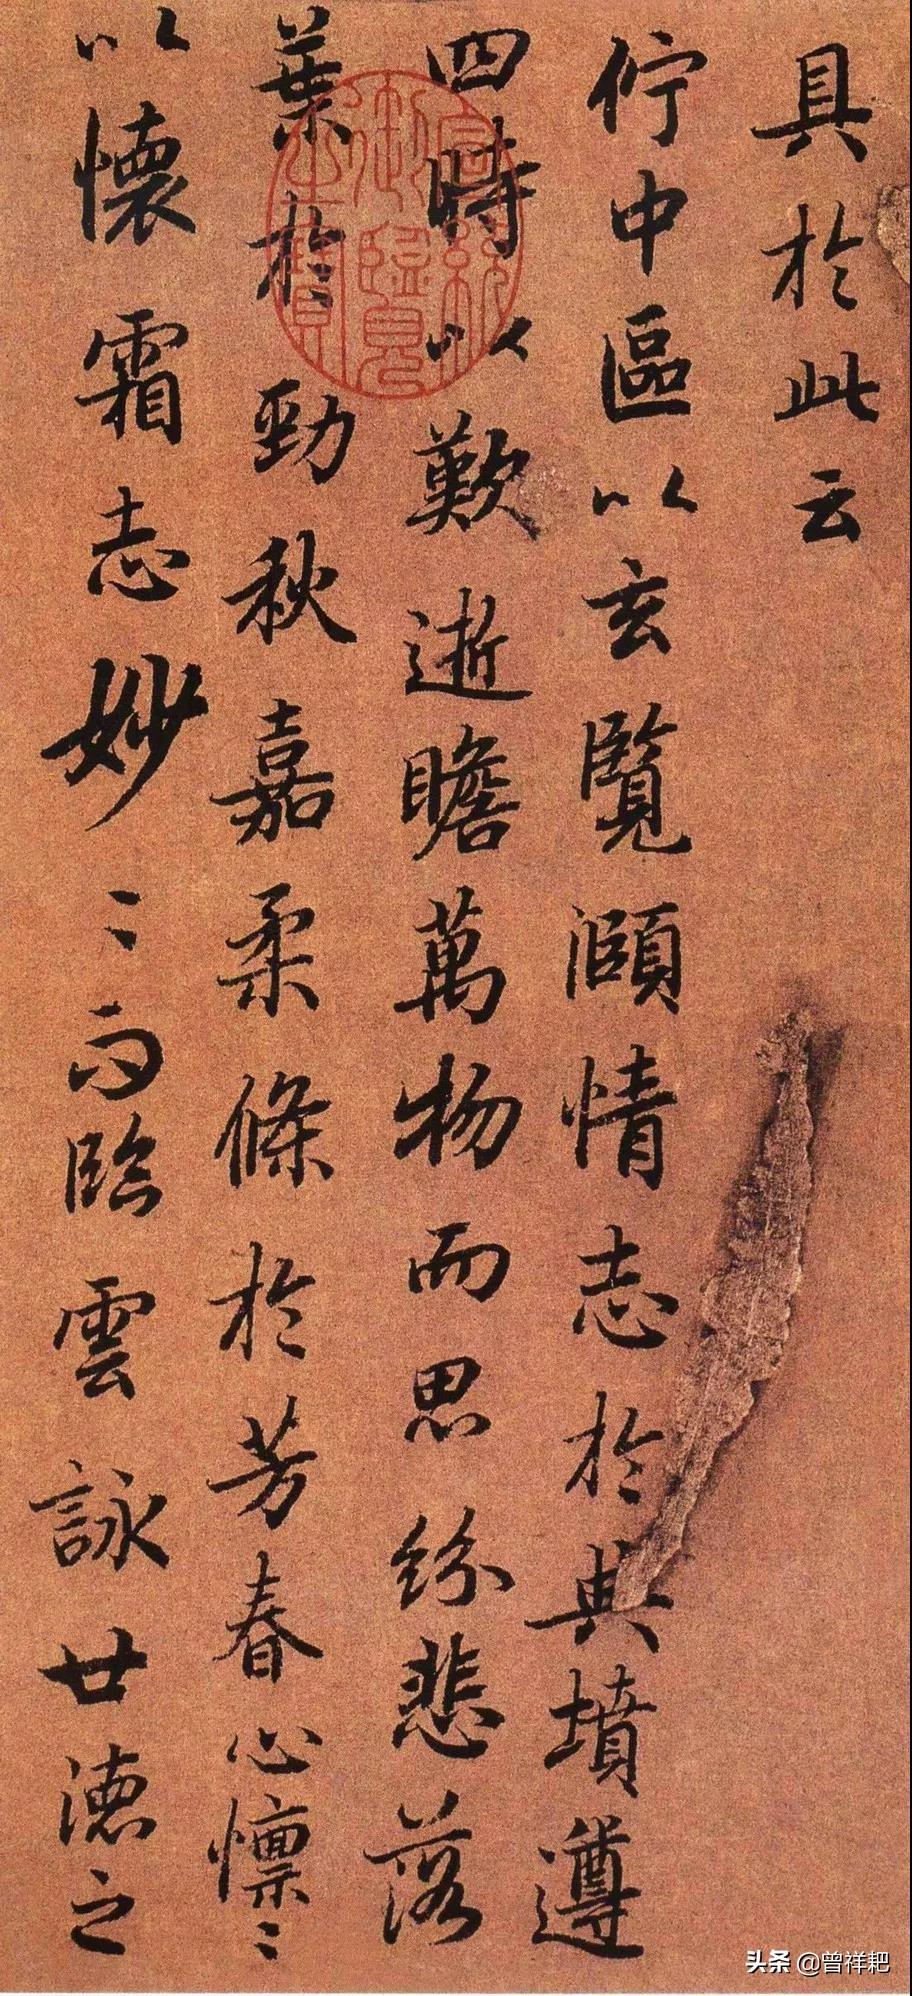 具於此云
佇中區以玄覽頤情志於典墳遵
四時以歎逝瞻萬物而思紛悲落
葉於勁秋嘉柔條於芳春心懍〻
以懷霜志妙〻而臨雲詠世德之
宣統御覽之寶
头条 @曾祥耙